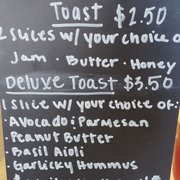 Toast $2.50
2 Slices w/ your choice of
Jam · Butter · Honey
Deluxe Toast $3.50
1 Slice w/ your choice of:
• Avocado : Parmesan
• Peanut Butter
• Basil Aioli
• Garlicky Hummus